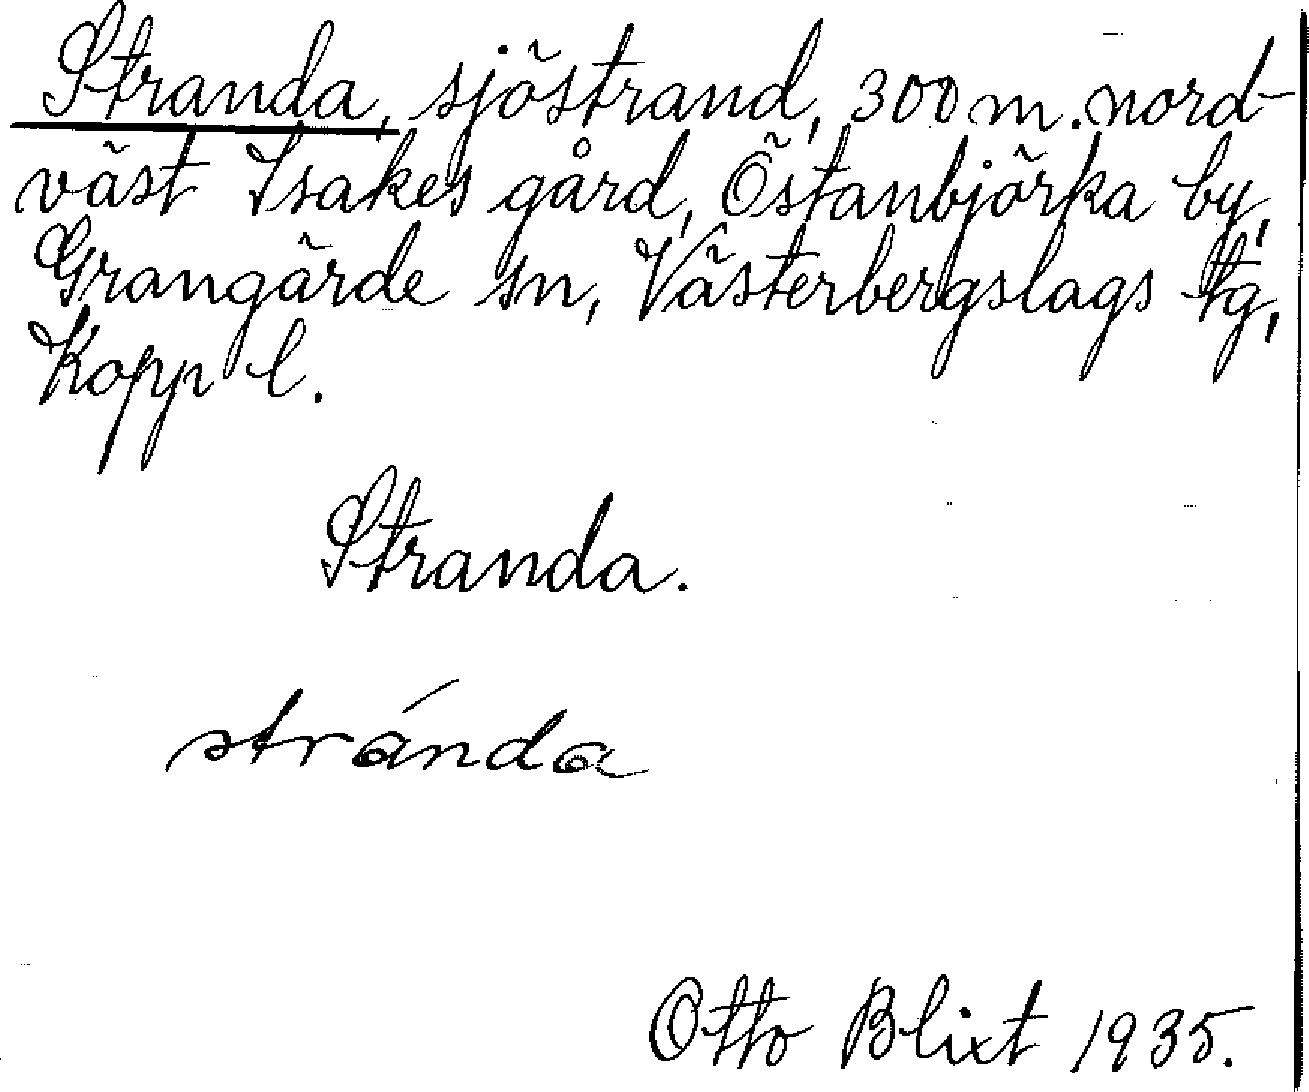 Stranda, sjöstrand, 300 m. nord-
väst Isakes gård, Östanbjörka by,
Grangärde sn, Västerbergslags tg,
Kopp l.
Stranda.
stránda
Otto Blixt 1935.